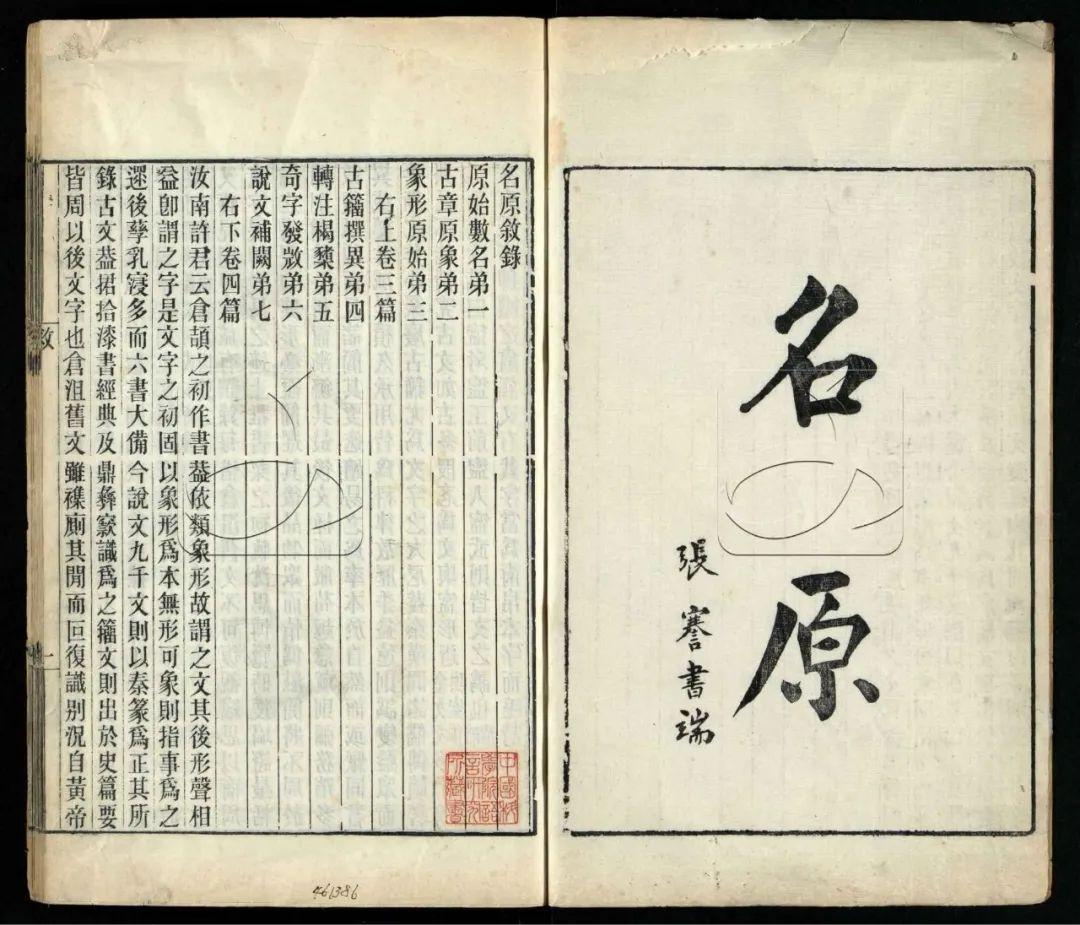 名原
張謇書端
名原敘錄
原始數名弟一
古章原象弟二
象形原始弟三
右上卷三篇
古籀撰異弟四
轉注楬櫫弟五
奇字發敚弟六
說文補闕弟七
右下卷四篇
汝南許君云倉頡之初作書葢依類象形故謂之文其後形聲相
益卽謂之字是文字之初固以象形爲本無形可象則指事爲之
遝後孳乳寖多而六書大備今說文九千文則以秦篆爲正其所
錄古文葢捃拾漆書經典及鼎彝窾識爲之籀文則出於史篇要
皆周以後文字也倉沮舊文雖襍廁其閒而叵復識別況自黃帝
敘
一
中國科學院語言研究所藏書
461386